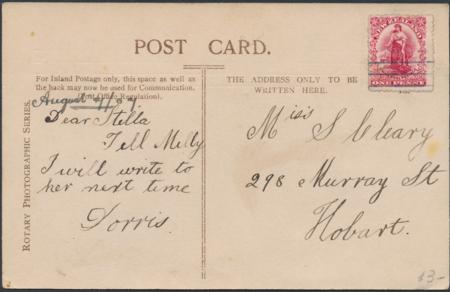 POST CARD.
For Inland Postage only, this space as well as
the back may now be used for Communication.
(Post Office Regulation).
THE ADDRESS ONLY TO BE
WRITTEN HERE.
NEW ZEALAND
ONE PENNY
ROTARY PHOTOGRAPHIC SERIES.
August
Dear Stella
Tell Milly
I will write to
her next time
Dorris.
Miss S Cleary
298 Murray St
Hobart.